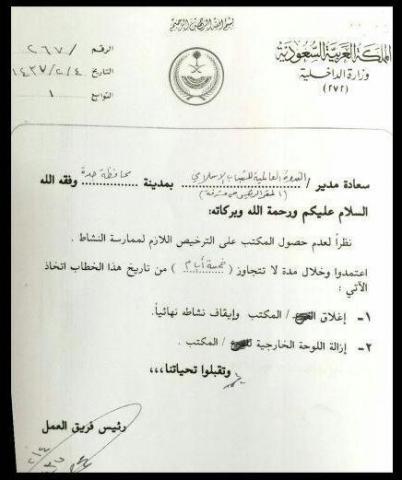 بسم الله الرحمن الرحيم
المملكة العربية السعودية
وزارة الداخلية
(٢٧٢)
الرقم / ٢٦٧
التاريخ ١٤٣٧/٢/٤
التوابع ١
سعادة مدير / الندوة العالمية للشباب الإسلامي بمدينة محافظة جدة وفقه الله
السلام عليكم ورحمة الله وبركاته:
نظراً لعدم حصول المكتب على الترخيص اللازم لممارسة النشاط .
اعتمدوا وخلال مدة لا تتجاوز ( خمسة أيام ) من تاريخ هذا الخطاب اتخاذ
الآتي :
١- إغلاق / المكتب وإيقاف نشاطه نهائياً.
٢- إزالة اللوحة الخارجية / المكتب .
وتقبلوا تحياتنا،،،
رئيس فريق العمل